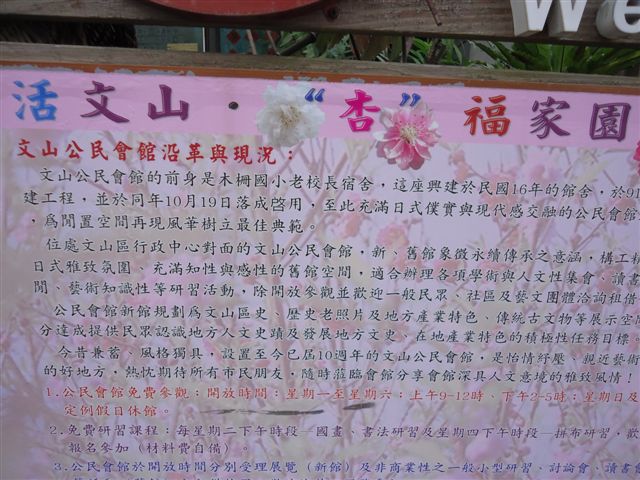 We
活文山・“杏”福家園
文山公民會館沿革與現況：
文山公民會館的前身是木柵國小老校長宿舍，這座興建於民國16年的館舍，於91
建工程，並於同年10月19日落成啓用，至此充滿日式樸實與現代感交融的公民會館
，為閒置空間再現風華樹立最佳典範。
位處文山區行政中心對面的文山公民會館，新、舊館象徵永續傳承之意涵，構工精
日式雅致氛圍、充滿知性與感性的舊館空間，適合辦理各項學術與人文性集會、讀書
閒、藝術知識性等研習活動，除開放參觀並歡迎一般民眾、社區及藝文團體洽詢租借
公民會館新館規劃為文山區史、歷史老照片及地方產業特色、傳統古文物等展示空
分達成提供民眾認識地方人文史蹟及發展地方文史、在地產業特色的積極性任務目標。
今昔兼蓄、風格獨具，設置至今已屆10週年的文山公民會館，是怡情紓壓、親近藝術
的好地方，熱忱期待所有市民朋友，隨時蒞臨會館分享會館深具人文意境的雅致風情！
1.公民會館免費參觀：開放時間：星期一至星期六：上午9-12時、下午2-5時；星期日及
定例假日休館。
2.免費研習課程：每星期二下午時段—國畫、書法研習及星期四下午時段—拼布研習，歡
報名參加（材料費自備）。
3.公民會館於開放時間分別受理展覽（新館）及非商業性之一般小型研習、討論會、讀書會